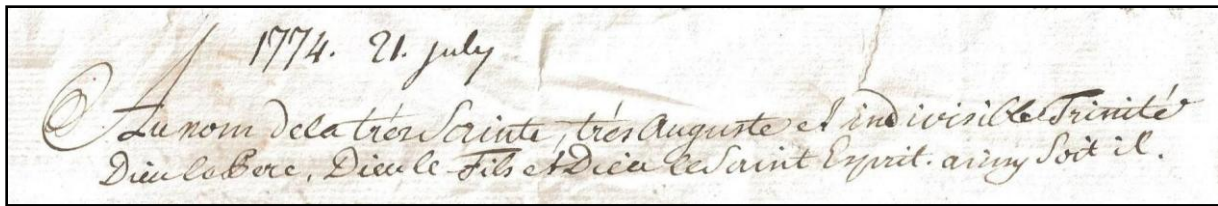 1774. 21. july
Au nom de la trés Sainte, trés Auguste et indivisible Trinité
Dieu le Pere, Dieu le Fils et Dieu le Saint Esprit. ainsy Soit il.